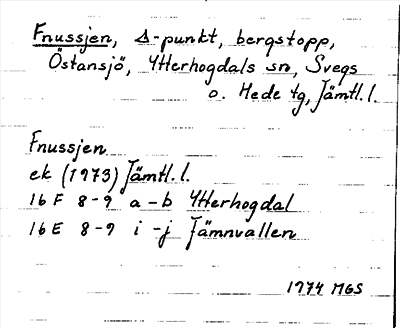 Fnussjen, Δ-punkt, bergstopp,
Östansjö, Ytterhogdals sn, Svegs
o. Hede tg, Jämtl. l.
Fnussjen
ek (1973) Jämtl. l.
16 F 8-9 a-b Ytterhogdal
16 E 8-9 i-j Jämnvallen
1974 MGS